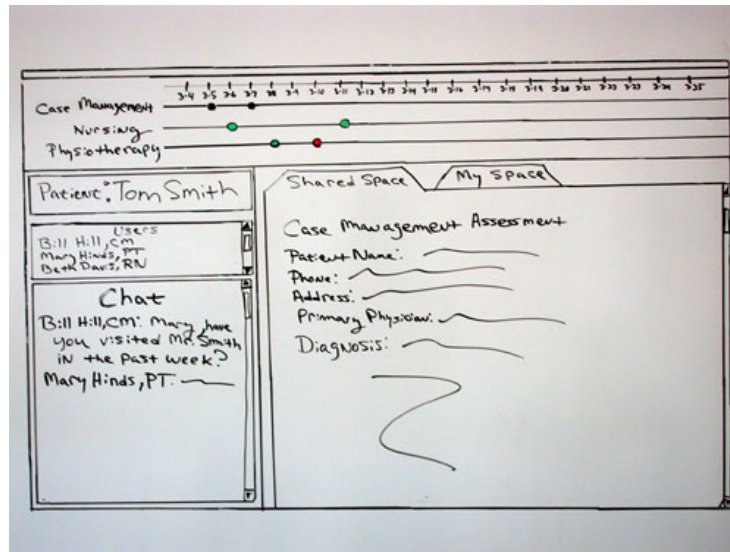 3-4 3-5 3-6 3-7 3-8 3-9 3-10 3-11 3-12 3-13 3-14 3-15 3-16 3-17 3-18 3-19 3-20 3-21 3-22 3-23 3-24 3-25
Case Management
Nursing
Physiotherapy
Patient: Tom Smith
Users
Bill Hill, CM
Mary Hinds, PT
Beth Davis, RN
Chat
Bill Hill, CM: Mary, have
you visited Mr. Smith
in the past week?
Mary Hinds, PT:
Shared Space
My Space
Case Management Assessment
Patient Name:
Phone:
Address:
Primary Physician:
Diagnosis: